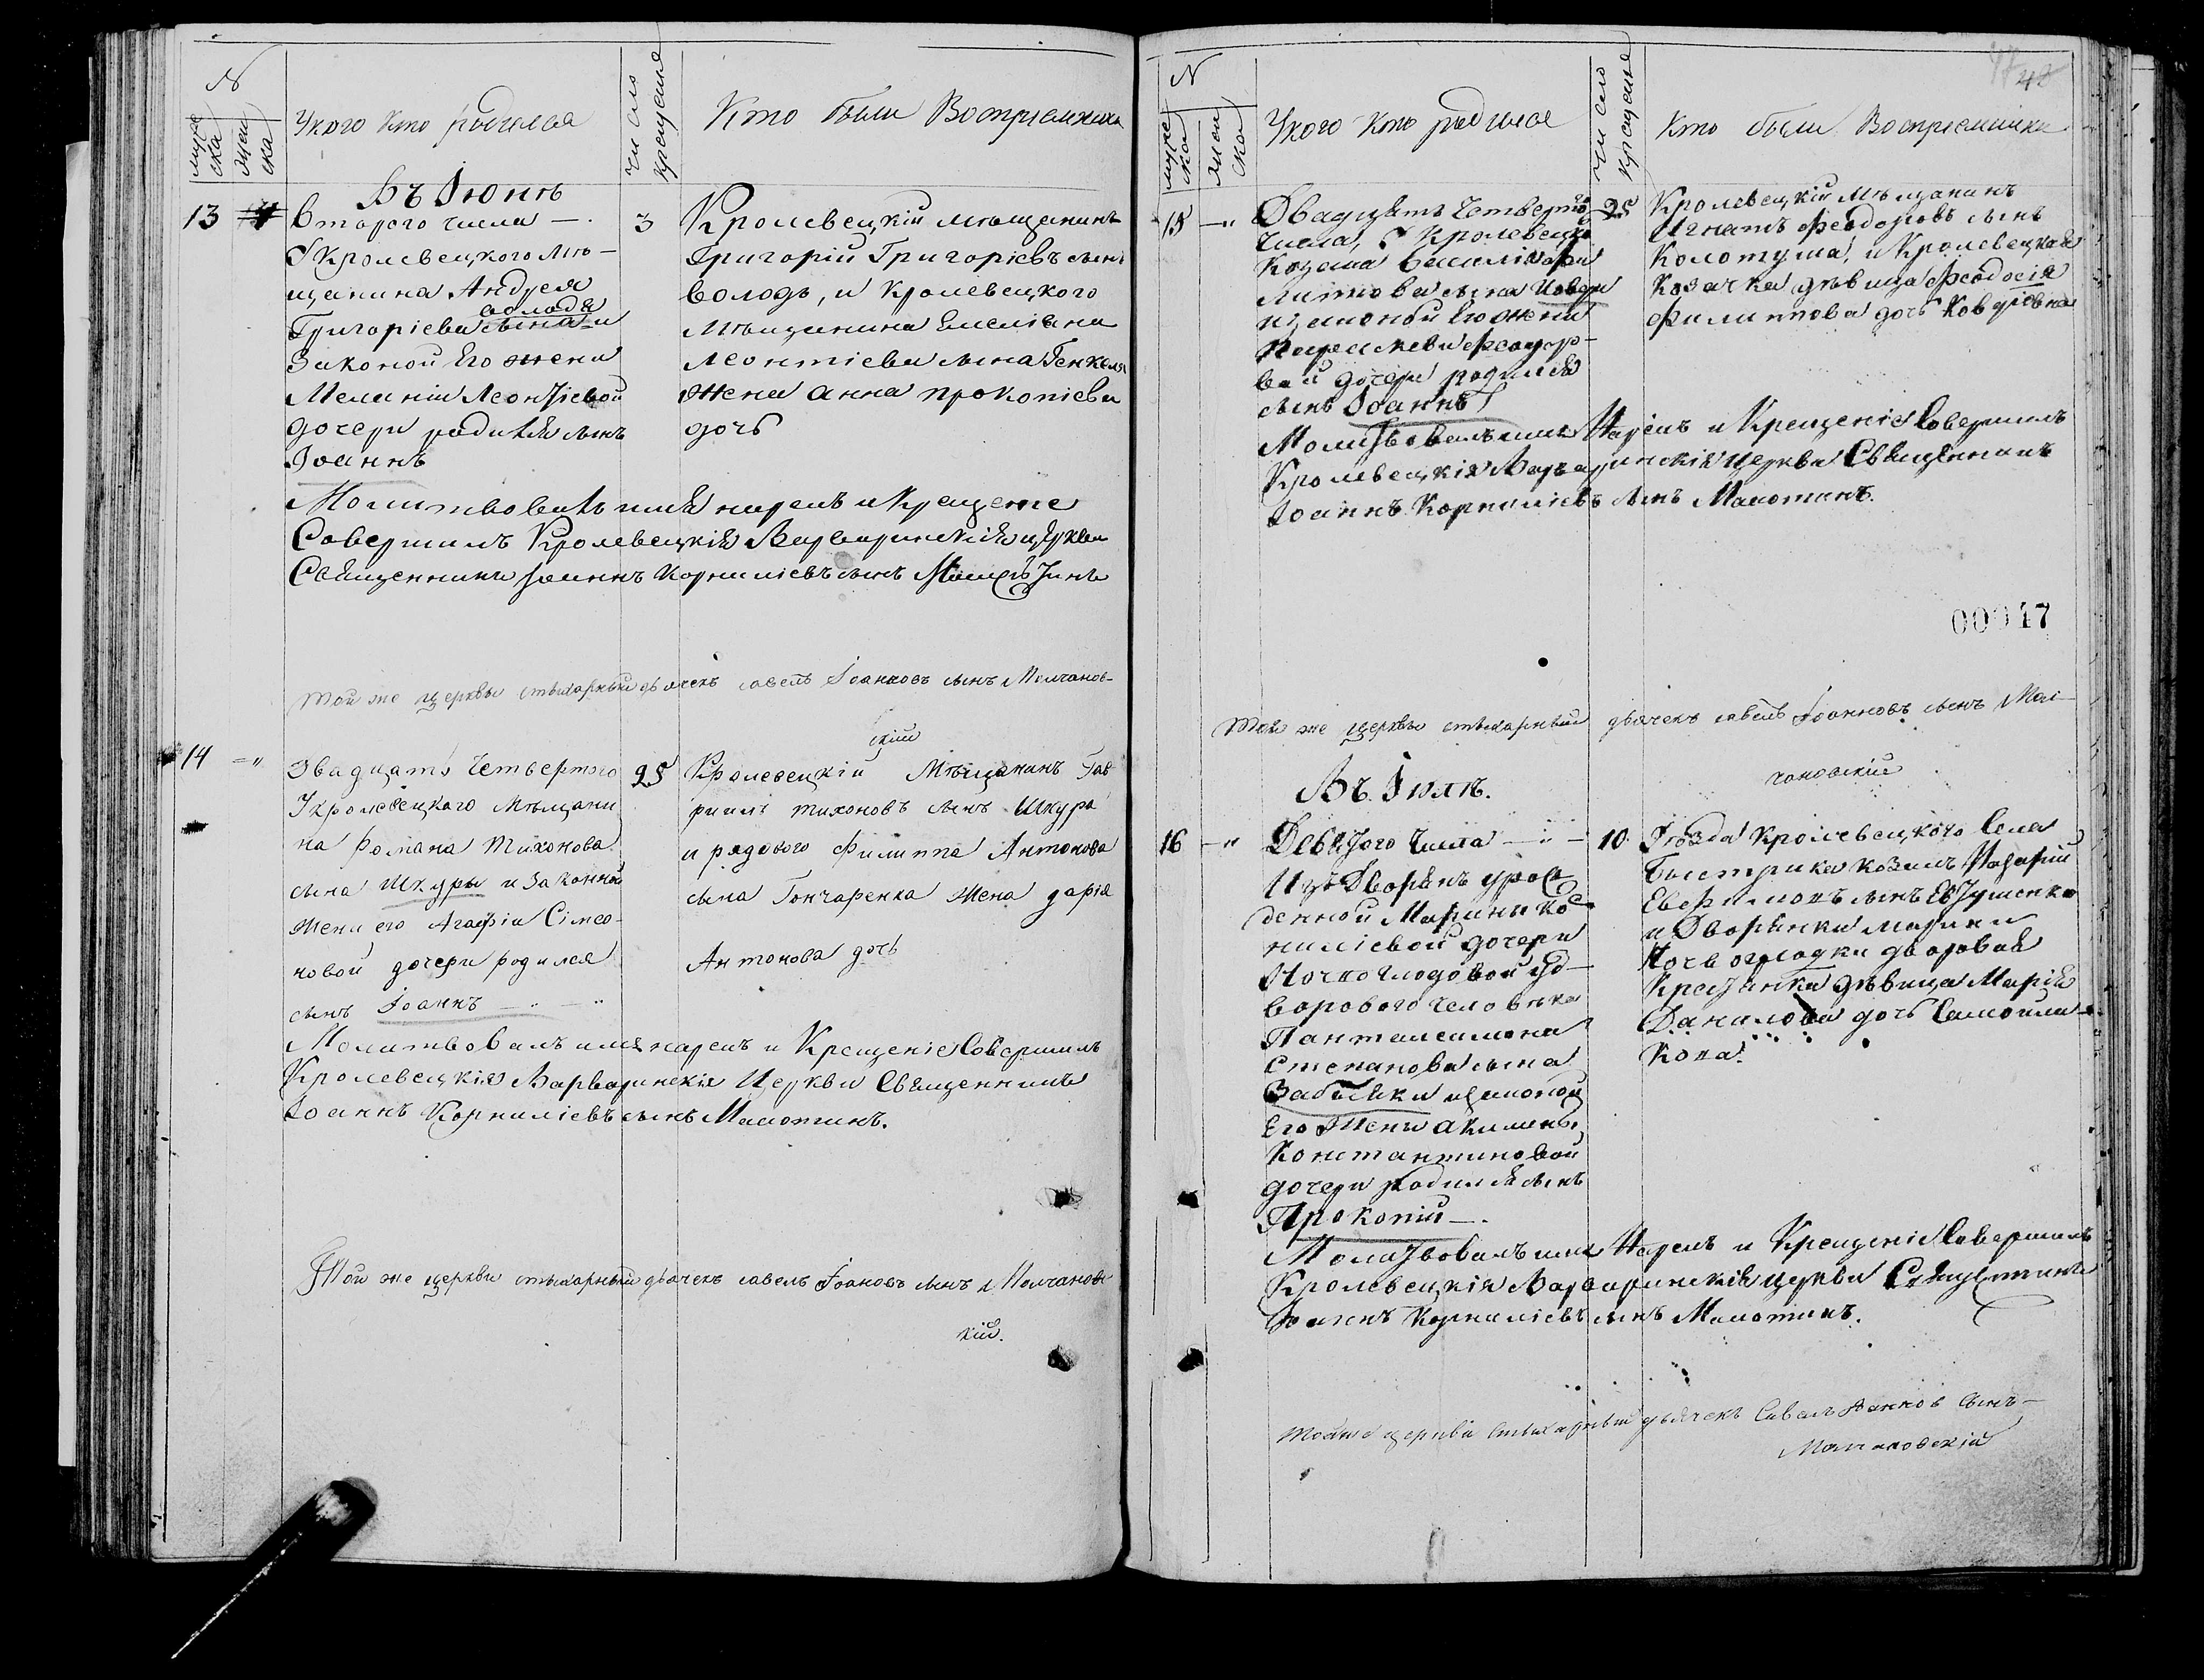 N
муже
ска
жен
ска
У кого кто родился
чи сло
крещения
Кто были Восприемники
Въ Іюнѣ
13
Второго числа —
3
У Кролевецкого Мѣ-
щанина Андрея
Володя
Григоріева сына и
Законой Его жены
Меланіи Леонтіевой
дочери родился сынъ
Іоаннъ
Кролевецкій мѣщанинъ
Григорій Григоріевъ сынъ
Володь, и Кролевецкого
Мѣщанина Емеліана
Леонтіева сына
жена Анна Прокопіева
дочь
Молитвовалъ имя нарекъ и Крещеніе
Совершилъ Кролевецкія Варваринскія церкви
Священникъ Іоаннъ Корниліевъ сынъ Малотинъ
Той же церкви стихарный дьячекъ Савелъ Іоанновъ сынъ Молчанов-
скій
14
Двадцать Четвертого
25
У кролевецкого Мѣщани
на Романа Тихонова
сына Шкуры и Законной
жены его Агафіи Сімео-
новой дочери родился
сынъ Іоаннъ
Кролевецкій Мѣщанинъ Гав
риилъ Тихоновъ сынъ Шкура
и рядового Филиппа Антонова
сына Гончаренка жена дарія
Антонова дочь
Молитвовалъ имя нарекъ и Крещеніе Совершилъ
Кролевецкія Варваринскія Церкви Священникъ
Іоаннъ Корниліевъ сынъ Малотинъ.
Той же церкви стихарный дьячекъ Савелъ Іоановъ сынъ Молчановс
кій.
N
муже
ска
жен
ска
У кого кто родился
чи сло
Крещения
Кто были Восприемники
15
Двадцать Четвертого
25
числа, У Кролевецко
Козака Василія
сына
изаконой Его жены
Параскевы Феодор-
вой дочери родился
сынъ Іоаннъ
Кролевецкій Мѣщанинъ
Игнатъ Феодоровъ сынъ
Колотуша, и Кролевецкая
Козачка дѣвица Феодосія
Филиппова дочь
Молитвовалъ имя Нарекъ и Крещеніе Совершилъ
Кролевецкія Варваринскія церкви Священникъ
Іоаннъ Корниліевъ сынъ Малотинъ.
00047
Той же церкви стихарный дьячекъ Савелъ Іоанновъ сынъ Мол-
чановскій
Въ Іюлѣ.
16
Девятого Числа
10
Изъ Дворянъ урож
денной Марины Ко
ниліевой дочери
Дво-
ворового человѣка
Пантелеимона
Степанова сына
изаконой
Его жены Акилины
Константиновой
дочери родился сынъ
Прокопій
Уѣзда Кролевецкого Села
Быстрика козакъ Назарій
Евфимовъ сынъ Евтушенко
и Дворянки Марины
дворовая
Крестянка дѣвица Марія
Данилова дочь Самойли-
кова.
Молитвовалъ имя Нарекъ и Крещеніе Совершилъ
Кролевецкія Варваринскія церкви Священникъ
Іоаннъ Корниліевъ сынъ Малотинъ.
Тойже церкви Стихарный дьячекъ Савелъ Іоанновъ Сынъ
Молчановскій